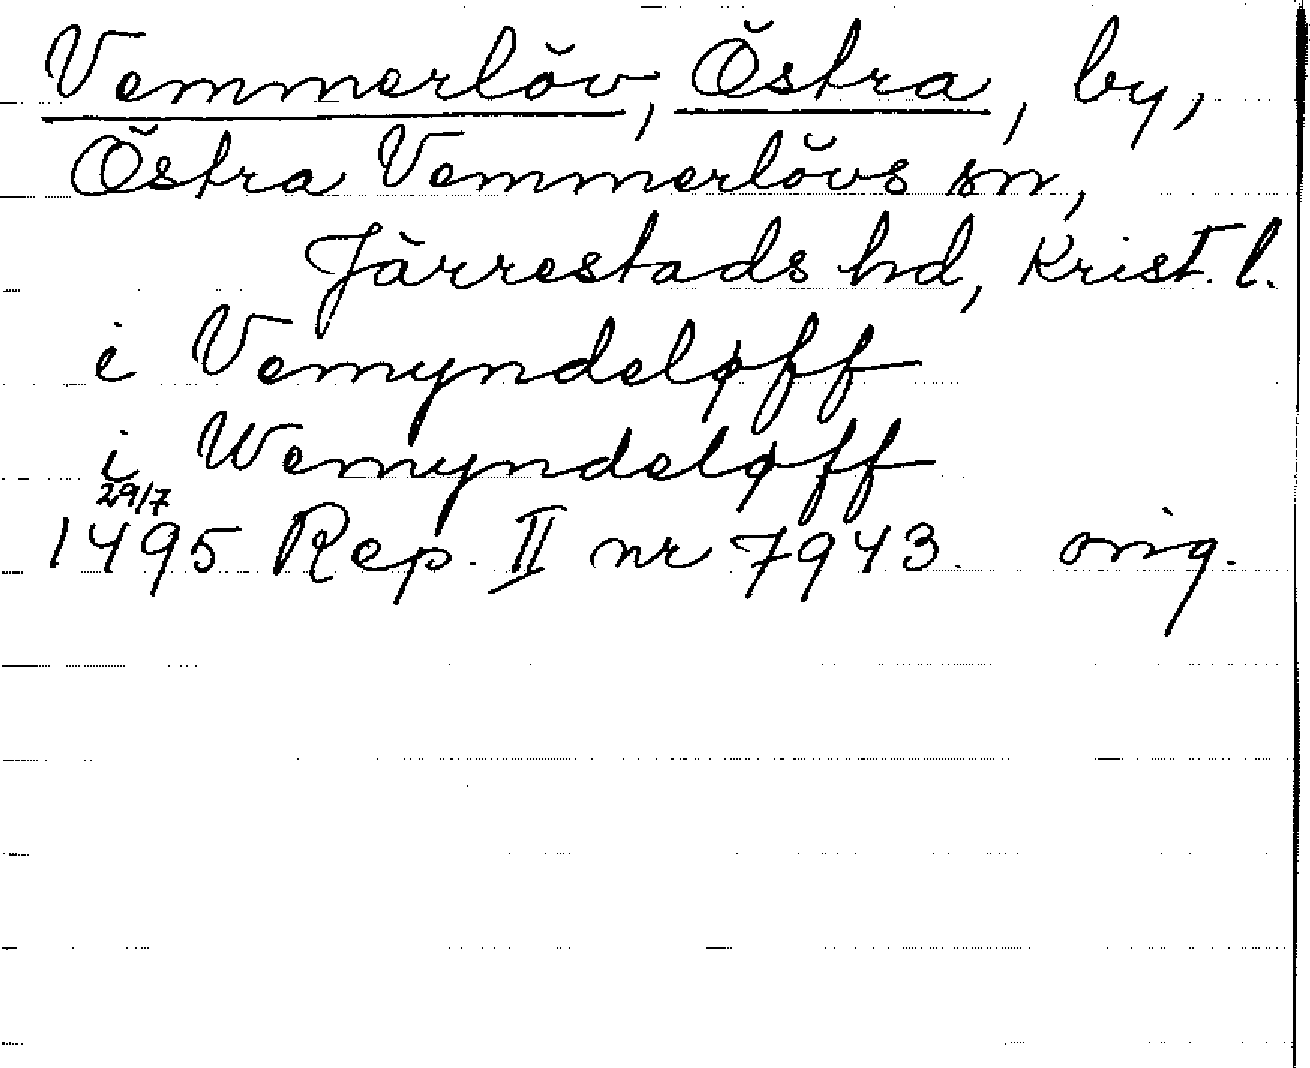 Vemmerlöv, Östra, by,
Östra Vemmerlövs sn,
Järrestads hd, Krist. l.
i Vemyndeløff
i Wemyndeløff
29/7
1495 Rep. II nr 7943. orig.